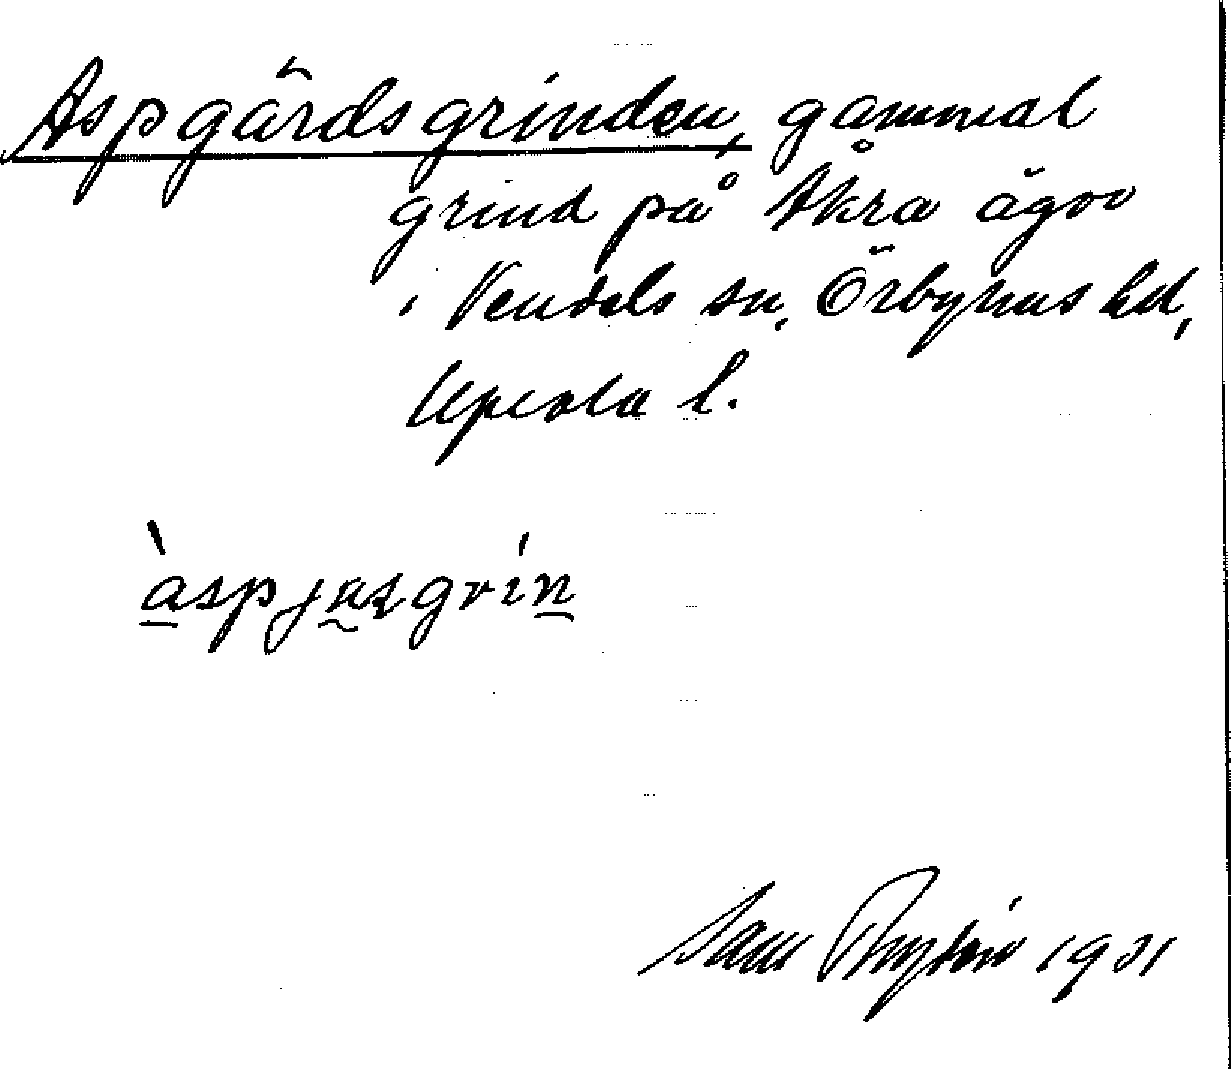 Aspgärdsgrinden, gammal
grind på Åkra ägor
i Vendels sn, Örbyhus hd,
Upsala l.
àspjæsgrín
Sam 1931